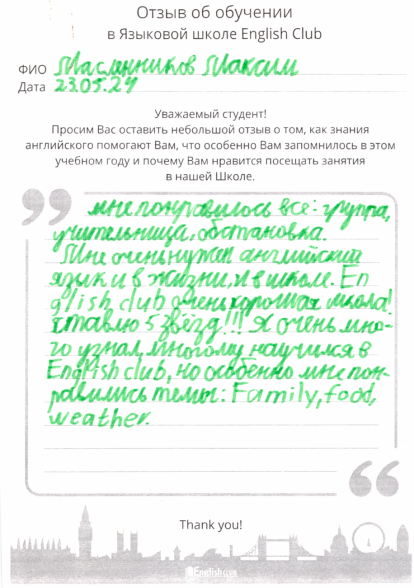 Отзыв об обучении
в Языковой школе English Club
ФИО Маслянников Максим
Дата 23.05.24
Уважаемый студент!
Просим Вас оставить небольшой отзыв о том, как знания
английского помогают Вам, что особенно Вам запомнилось в этом
учебном году и почему Вам нравится посещать занятия
в нашей Школе.
мне понравилось все: группа,
учительница, обстановка.
Мне очень нужен английский
язык и в жизни, и в школе. En
glish club очень хорошая школа!
ставлю 5 звёзд!!! Я очень мно-
го узнал, многому научился в
English club, но особенно мне пон-
равились темы: Family, food,
weather.
Thank you!
English club